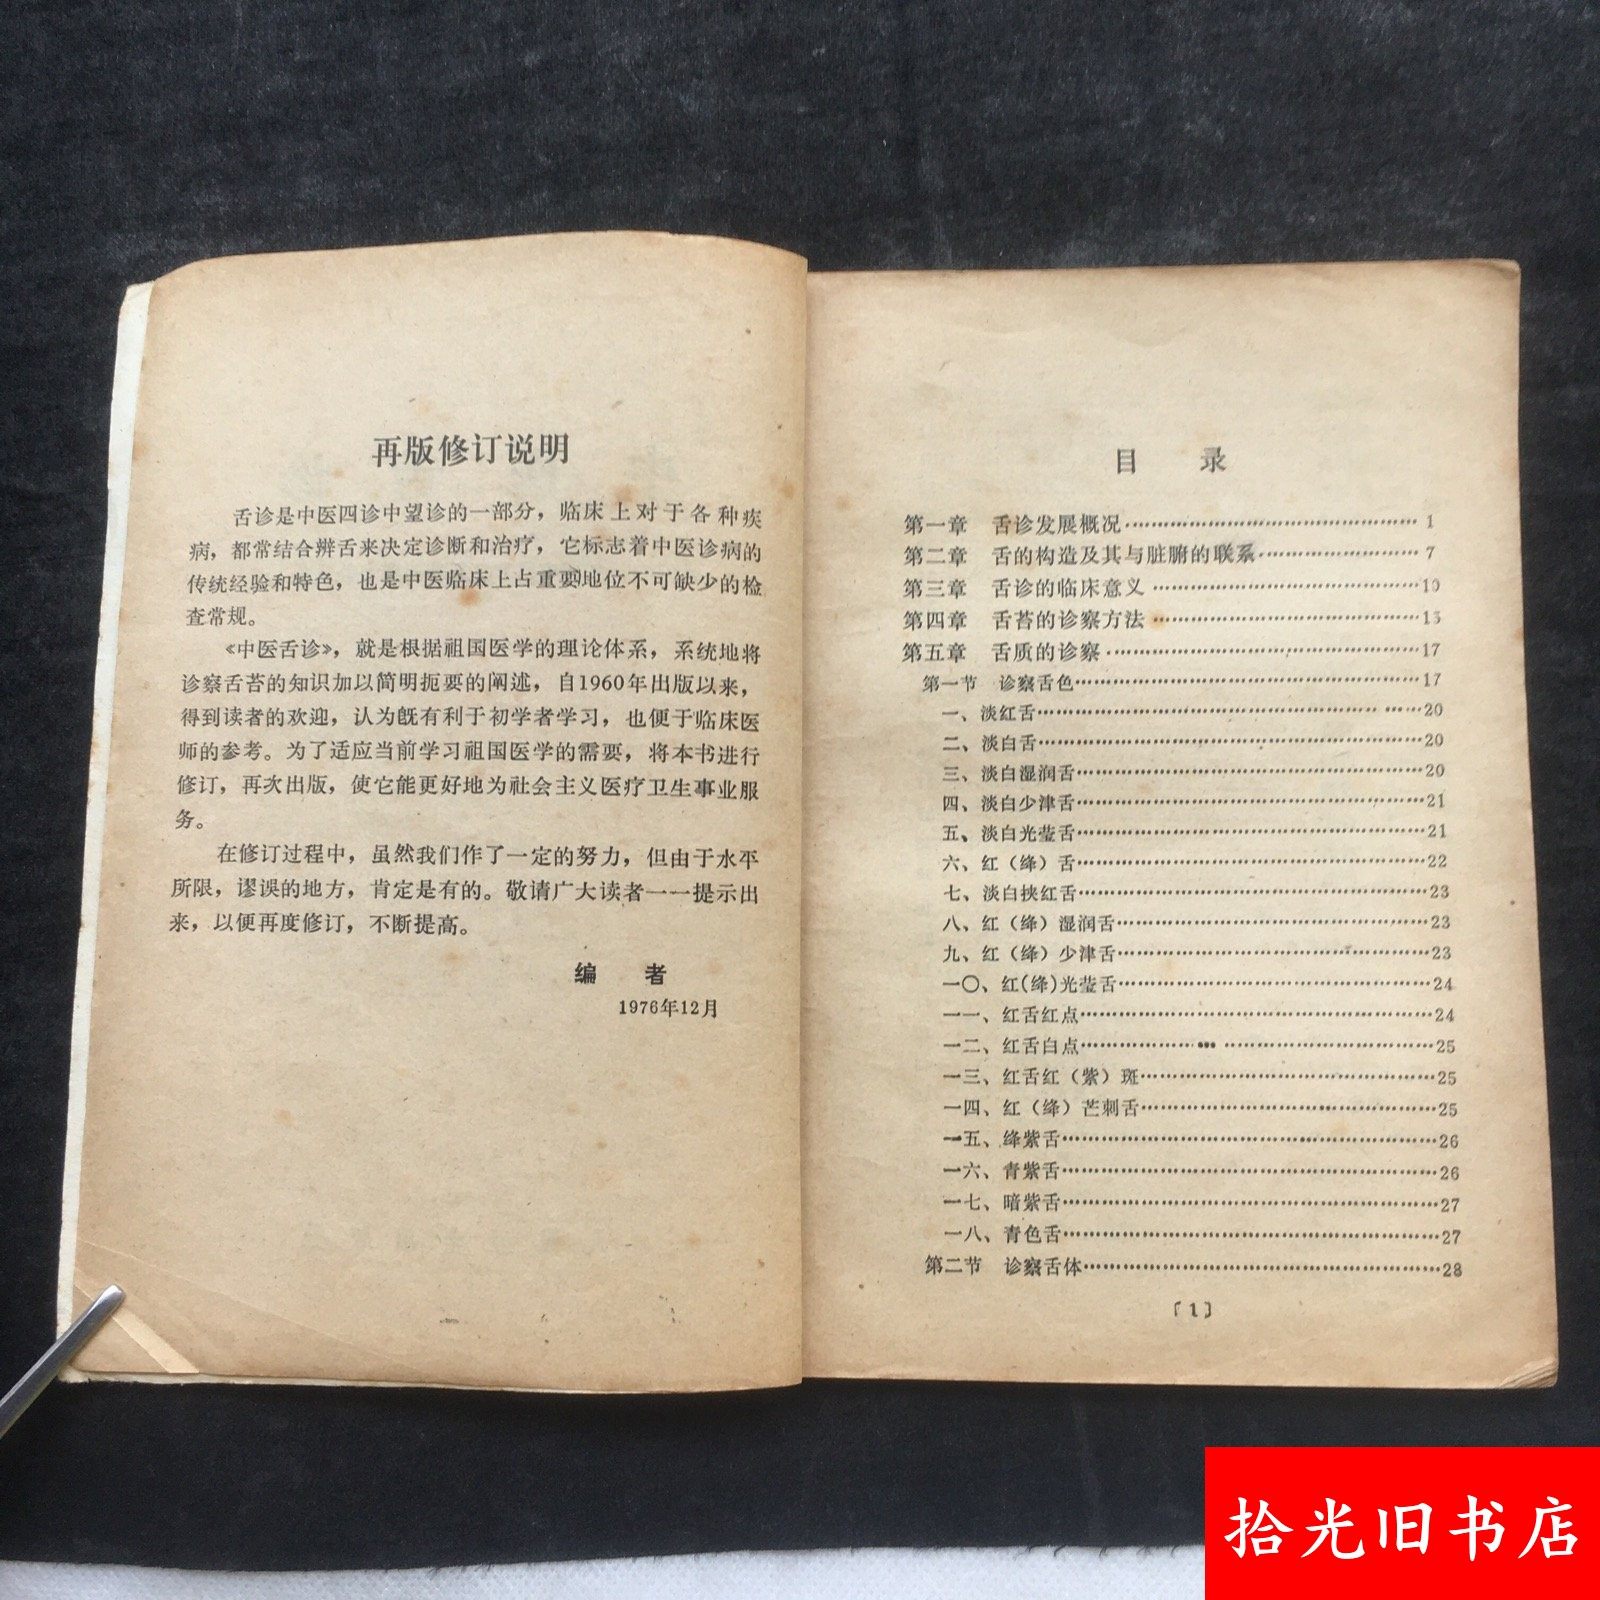 再版修订说明
舌诊是中医四诊中望诊的一部分，临床上对于各种疾
病，都常结合辨舌来决定诊断和治疗，它标志着中医诊病的
传统经验和特色，也是中医临床上占重要地位不可缺少的检
查常规。
《中医舌诊》，就是根据祖国医学的理论体系，系统地将
诊察舌苔的知识加以简明扼要的阐述，自1960年出版以来，
得到读者的欢迎，认为既有利于初学者学习，也便于临床医
师的参考。为了适应当前学习祖国医学的需要，将本书进行
修订，再次出版，使它能更好地为社会主义医疗卫生事业服
务。
在修订过程中，虽然我们作了一定的努力，但由于水平
所限，谬误的地方，肯定是有的。敬请广大读者一一提示出
来，以便再度修订，不断提高。
编　者
1976年12月
目　录
第一章　舌诊发展概况…………………………………1
第二章　舌的构造及其与脏腑的联系…………………7
第三章　舌诊的临床意义………………………………10
第四章　舌苔的诊察方法………………………………15
第五章　舌质的诊察……………………………………17
第一节　诊察舌色………………………………………17
一、淡红舌………………………………………………20
二、淡白舌………………………………………………20
三、淡白湿润舌…………………………………………20
四、淡白少津舌…………………………………………21
五、淡白光莹舌…………………………………………21
六、红（绛）舌…………………………………………22
七、淡白挟红舌…………………………………………23
八、红（绛）湿润舌……………………………………23
九、红（绛）少津舌……………………………………23
一〇、红(绛)光莹舌……………………………………24
一一、红舌红点…………………………………………24
一二、红舌白点…………………………………………25
一三、红舌红（紫）斑…………………………………25
一四、红（绛）芒刺舌…………………………………25
一五、绛紫舌……………………………………………26
一六、青紫舌……………………………………………26
一七、暗紫舌……………………………………………27
一八、青色舌……………………………………………27
第二节　诊察舌体………………………………………28
〔1〕
拾光旧书店